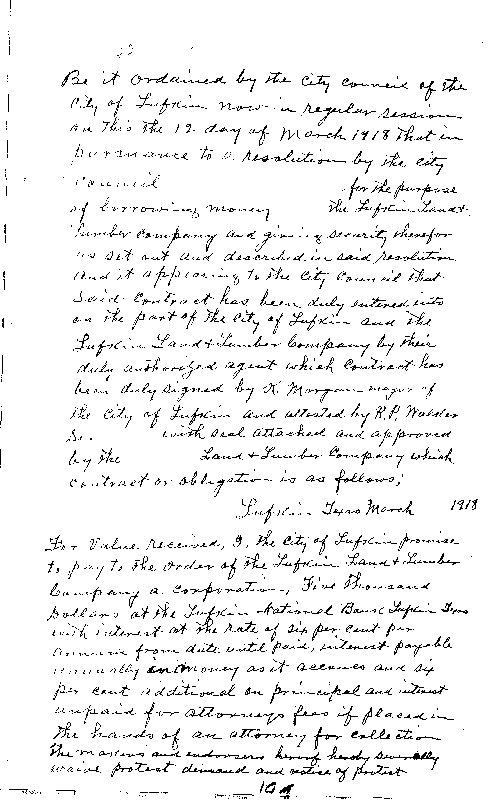 Be it ordained by the City council of the
City of Lufkin now in regular session
on this the 12 day of March 1918 that in
pursuance to a resolution by the City
Council for the purpose
of borrowing money the Lufkin Land &
Lumber Company and giving security therefor
as set out and described in said resolution
and it appearing to the City Council that
said Contract has been duly entered into
on the part of the City of Lufkin and the
Lufkin Land & Lumber Company by their
duly authorized agent which Contract has
been duly signed by K. Morgan mayor of
the City of Lufkin and attested by R.P. Walder
with seal attached and approved
by the Land & Lumber Company which
contract or obligation is as follows;
Lufkin Texas March 1918
For Value received, I, the City of Lufkin promise
to pay to the order of the Lufkin Land & Lumber
Company a corporation, Five Thousand
Dollars at the Lufkin National Bank Lufkin Texas
with interest at the rate of six per cent per
annum from date until paid, interest payable
annually in money as it accrues and six
per cent additional on principal and interest
unpaid for attorneys fees if placed in
the hands of an attorney for collection
the makers and endorsers hereof hereby severally
waive protest demand and notice of protest